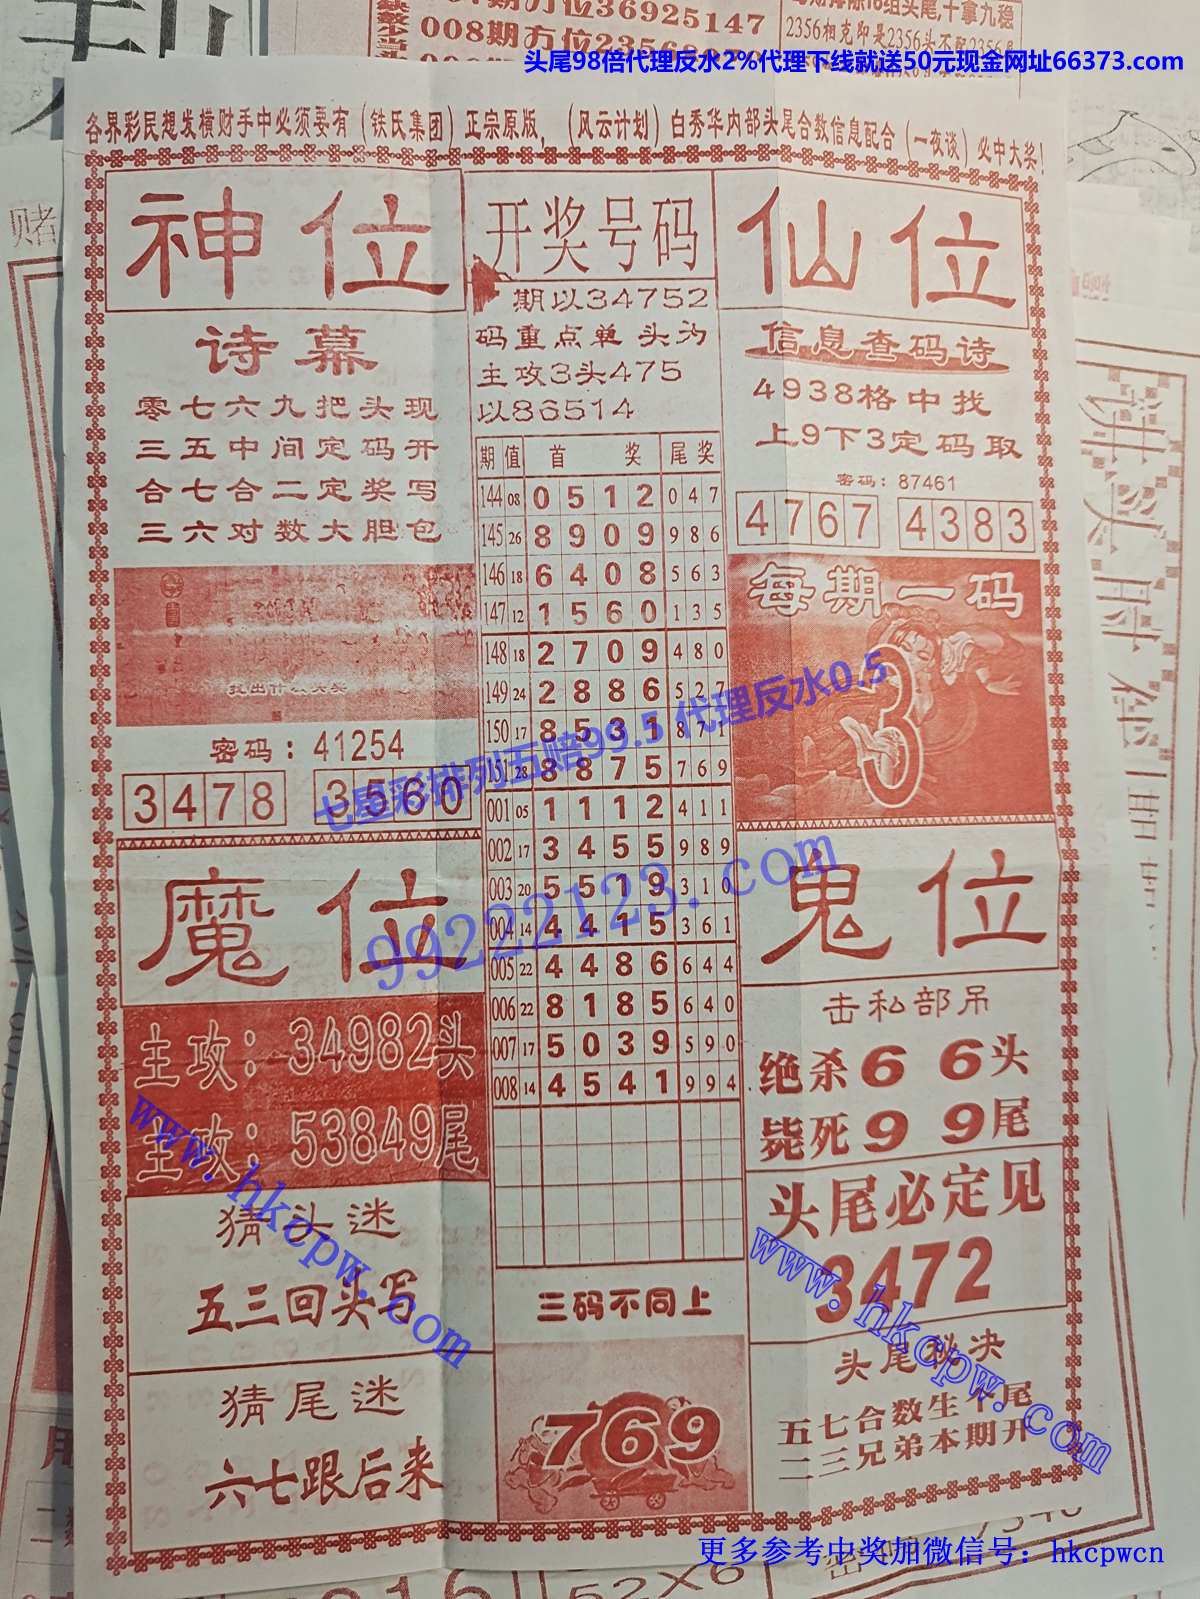 008期方位23568079
2356相克即是2356头不配2356尾
头尾98倍代理反水2%代理下线就送50元现金网址66373.com
各界彩民想发横财手中必须要有(铁氏集团)正宗原版,(风云计划)白秀华内部头尾合数信息配合(一夜谈)必中大奖!
神位
诗幕
零七六九把头现
三五中间定码开
合七合二定奖写
三六对数大胆包
密码:41254
3478 3560
开奖号码
期以34752
码重点单 头为
主攻3头475
以86514
期 值 首 奖 尾奖
144 08 0 5 1 2 0 4 7
145 26 8 9 0 9 9 8 6
146 18 6 4 0 8 5 6 3
147 12 1 5 6 0 1 3 5
148 18 2 7 0 9 4 8 0
149 24 2 8 8 6 5 2 7
150 17 8 5 3 1 8 7 1
151 28 8 8 7 5 7 6 9
001 05 1 1 1 2 4 1 1
002 17 3 4 5 5 9 8 9
003 20 5 5 1 9 3 1 0
004 14 4 4 1 5 3 6 1
005 22 4 4 8 6 6 4 4
006 22 8 1 8 5 6 4 0
007 17 5 0 3 9 5 9 0
008 14 4 5 4 1 9 9 4
三码不同上
769
仙位
信息查码诗
4938格中找
上9下3定码取
密码:87461
4767 4383
每期一码
3
七星彩排列五赔99.5 代理反水0.5
99222123.com
魔位
主攻:34982头
主攻:53849尾
猜头迷
五三回头写
猜尾迷
六七跟后来
鬼位
击私部吊
绝杀6 6头
毙死9 9尾
头尾必定见
3472
头尾秘决
五七合数生个尾
二三兄弟本期开
www.hkcpw.com
www.hkcpw.com
更多参考中奖加微信号:hkcpwcn